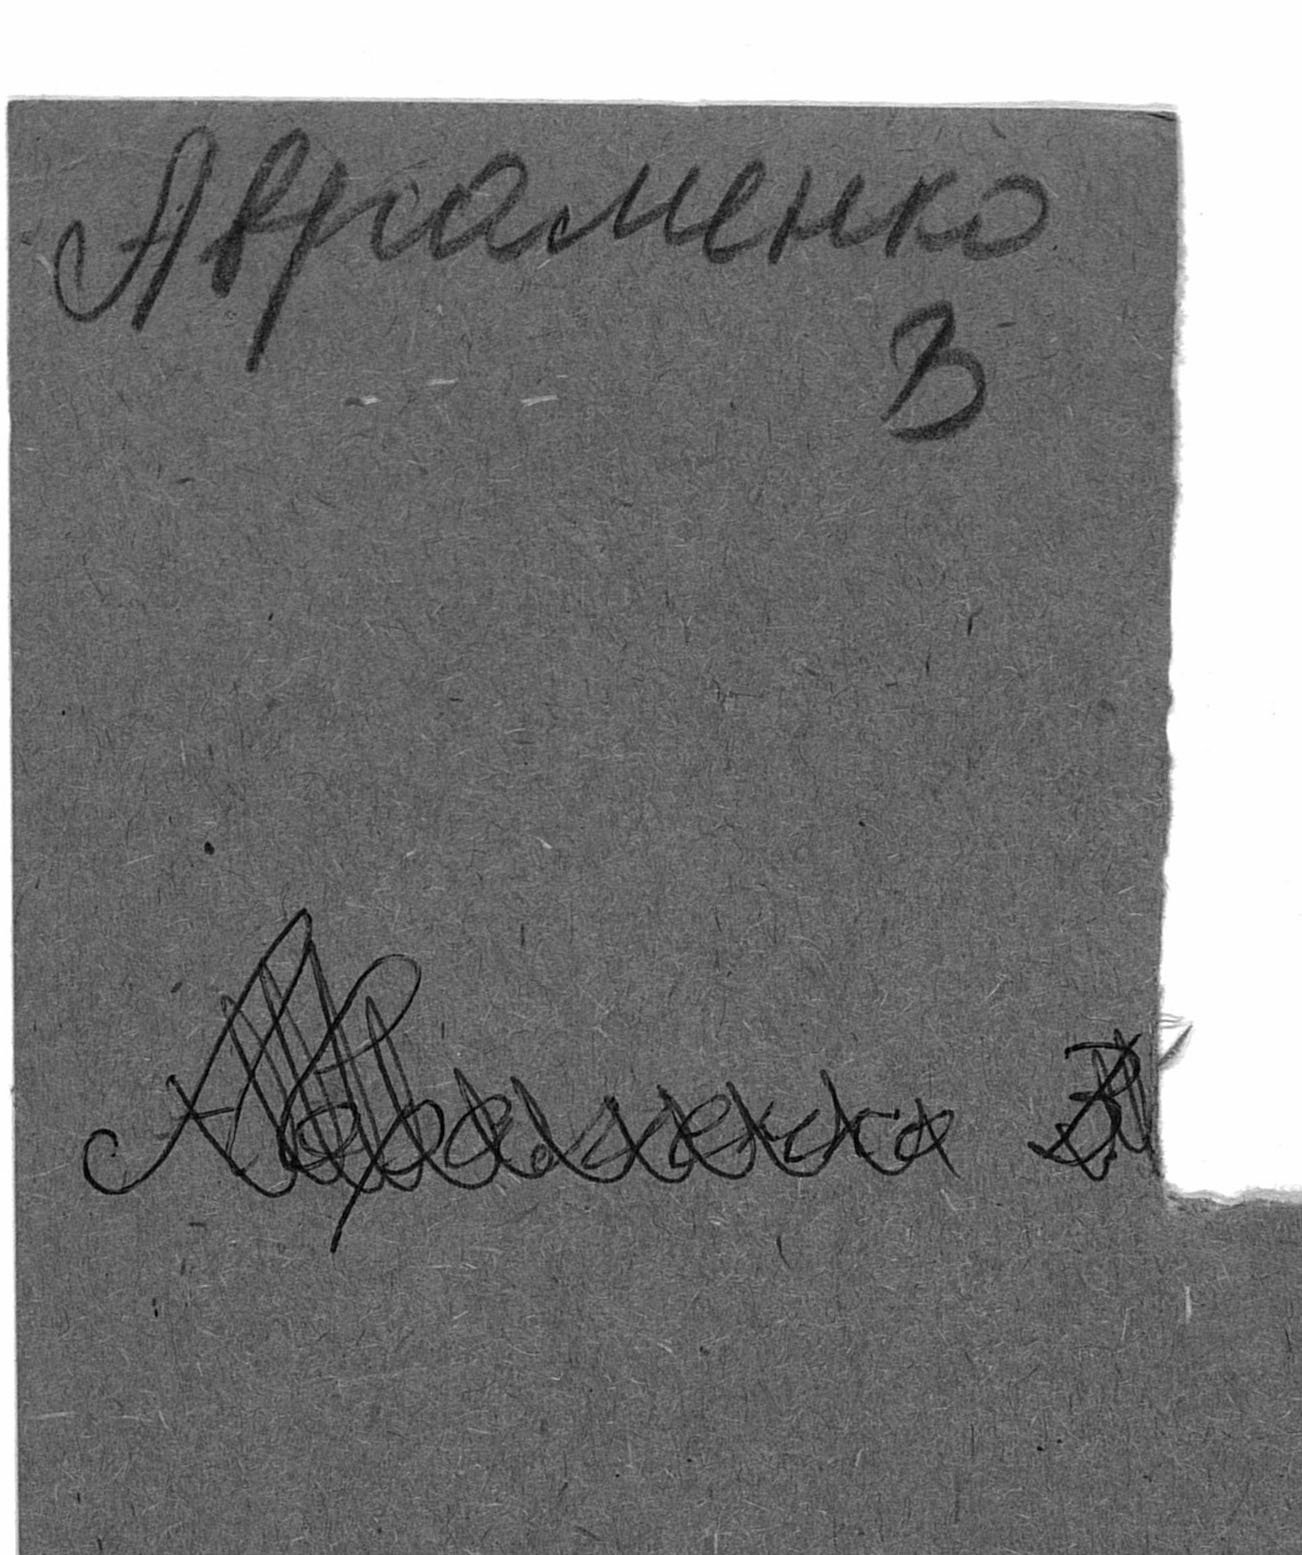 Авраменко
В
Авраменко В